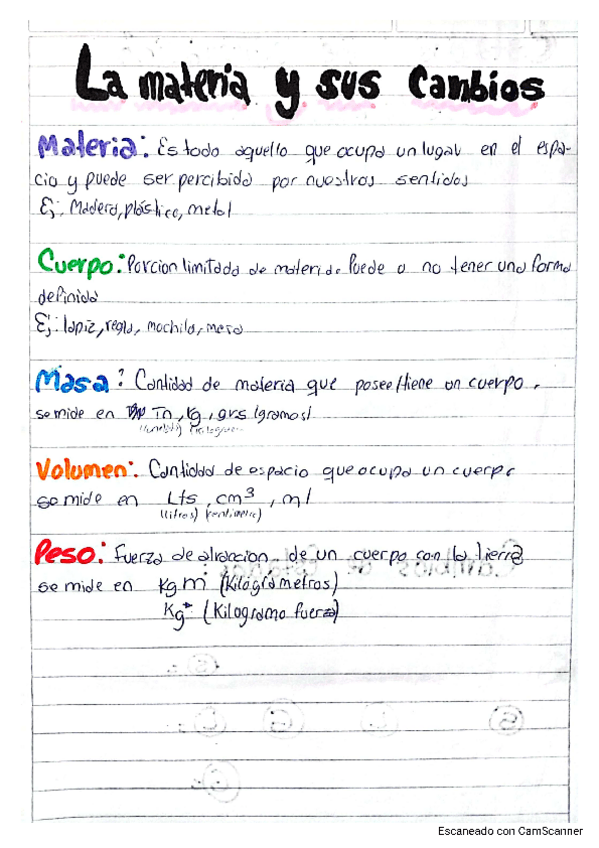 La materia y sus Cambios
Materia: Es todo aquello que ocupa un lugar en el espa-
cio y puede ser percibido por nuestros sentidos
Ej: Madera, plástico, metal
Cuerpo: Porcion limitada de materia. Puede o no tener una forma
definida
Ej: lapiz, regla, mochila, mesa
Masa: Cantidad de materia que posee/tiene un cuerpo.
se mide en Tn, kg, grs (gramos)
Volumen: Cantidad de espacio que ocupa un cuerpo
se mide en Lts, cm³, ml
(litros)
Peso: Fuerza de atraccion de un cuerpo con la tierra
se mide en kgm (Kilográmetros)
Kg (Kilogramo fuerza)
Escaneado con CamScanner